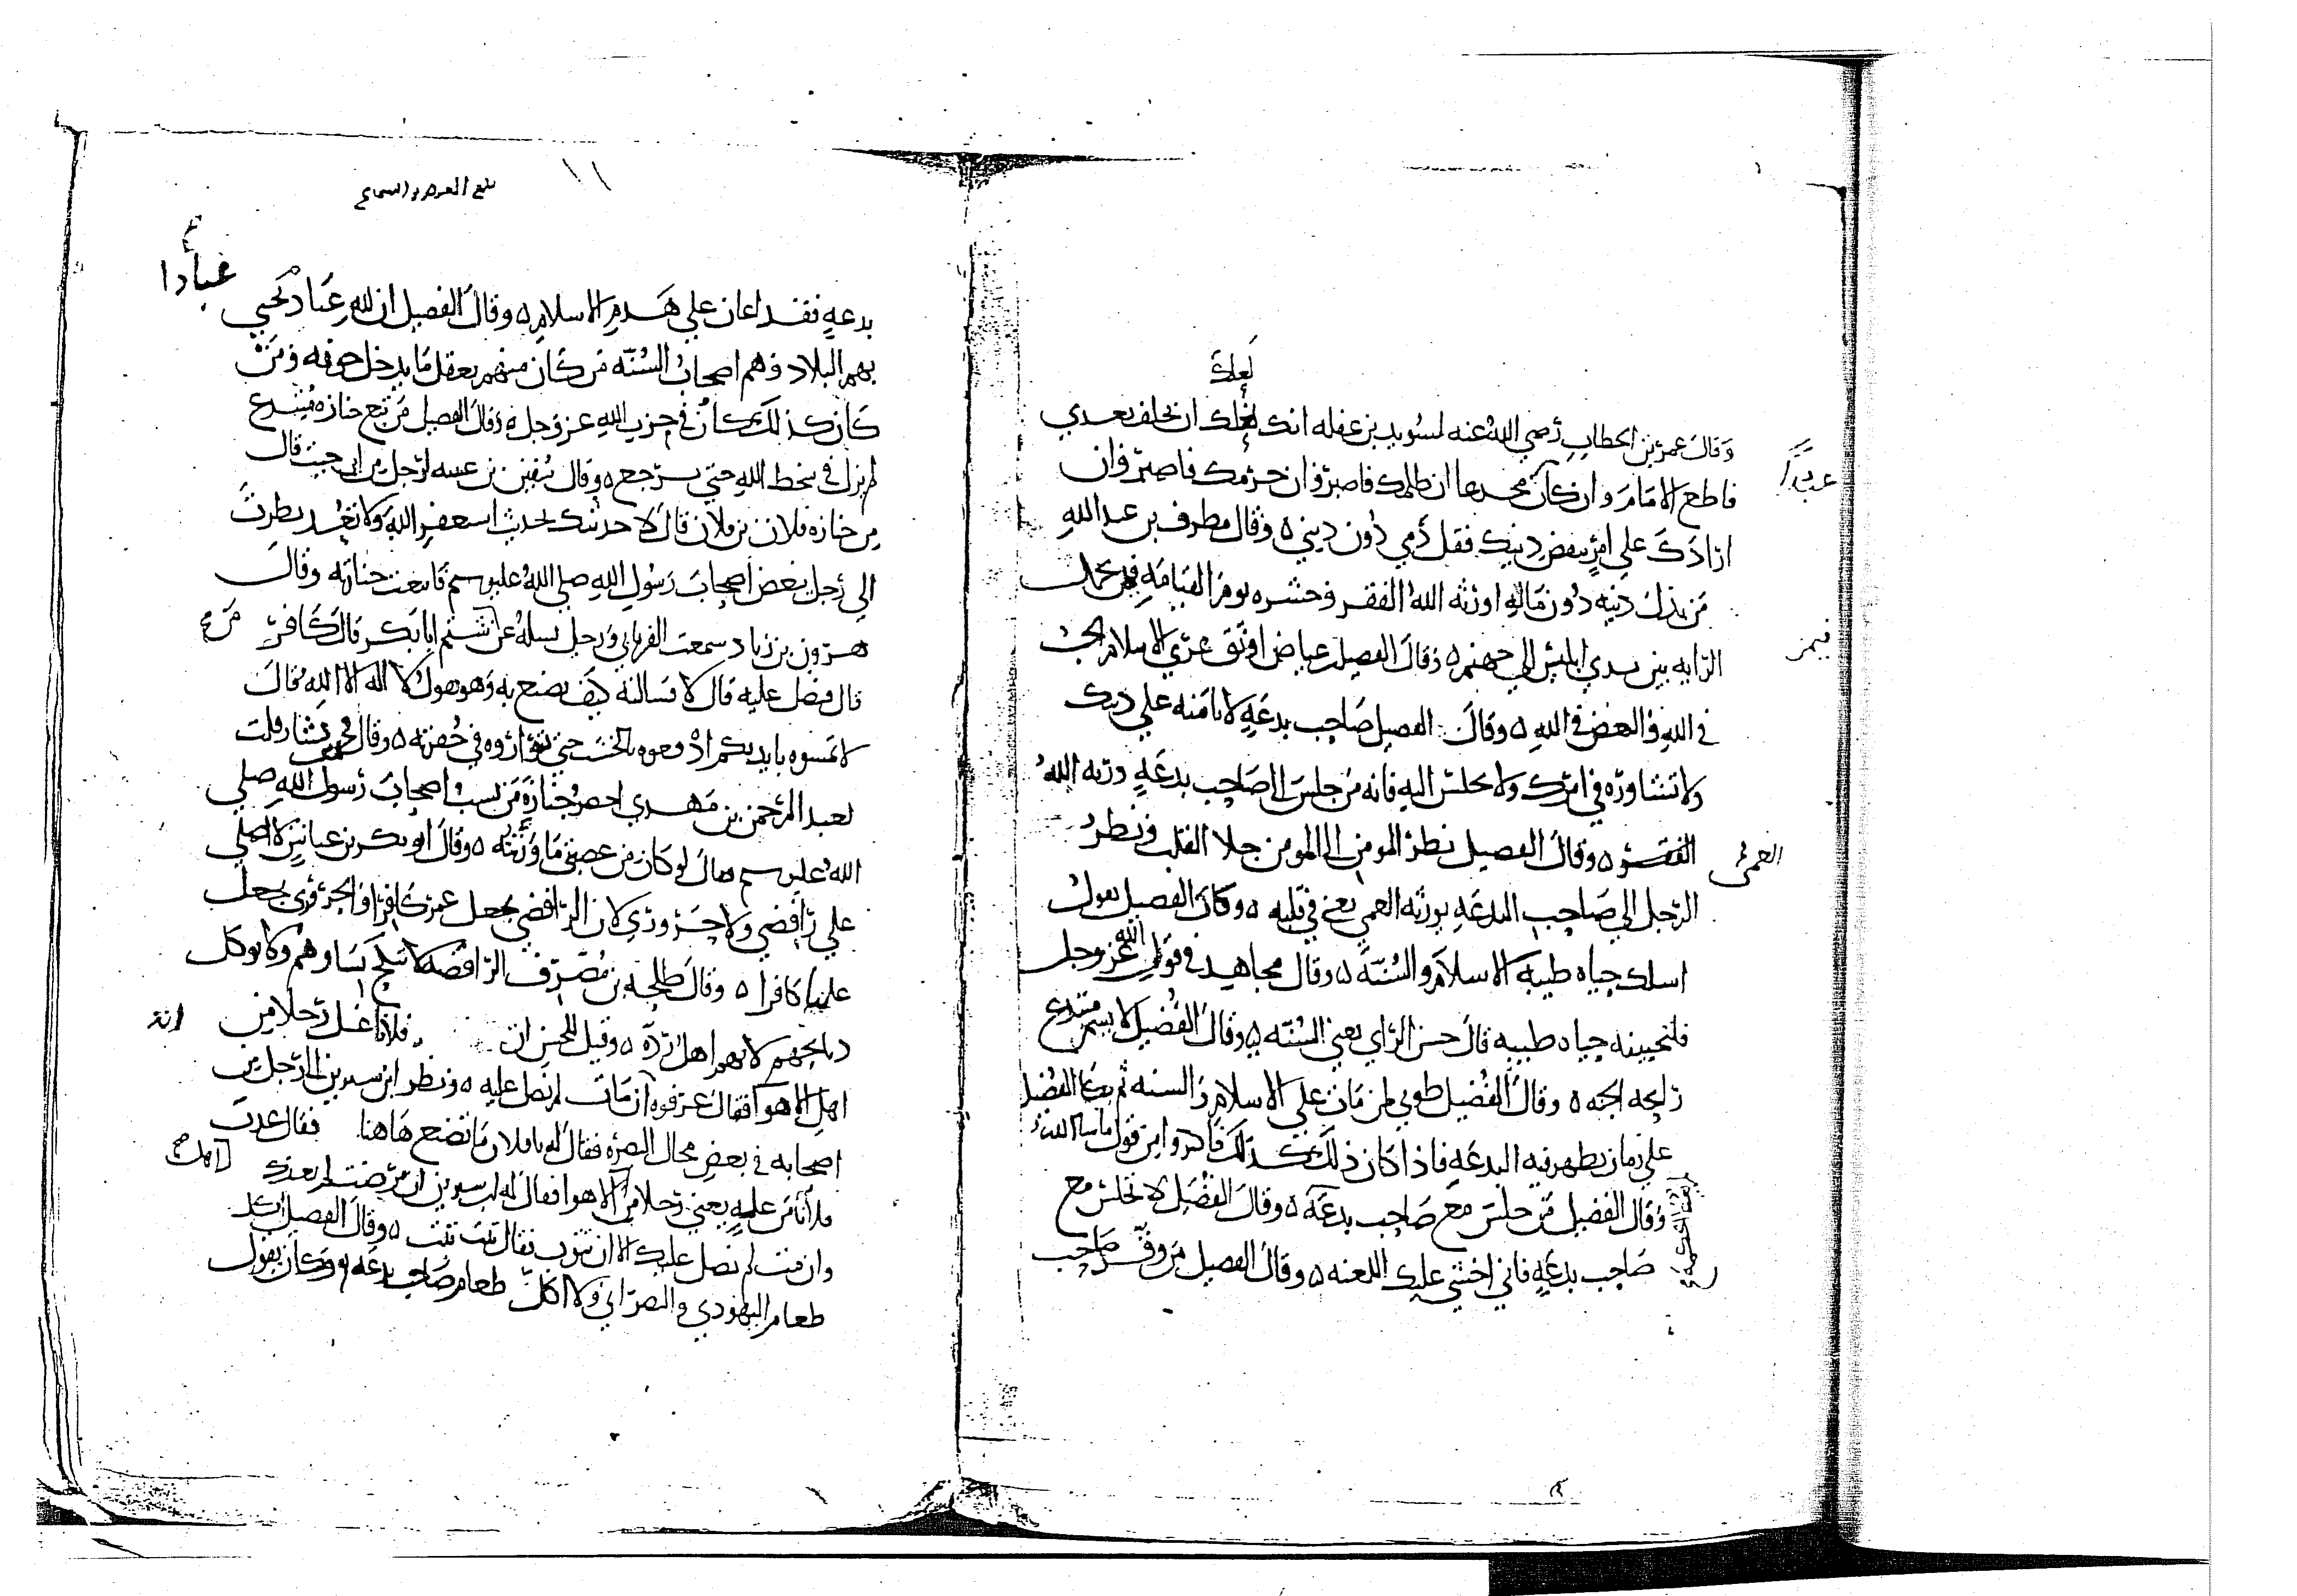 لعلك
وقال عمر بن الخطاب رضي الله عنه لسويد بن غفله انك لعلك ان تخلف بعدي
فاطع الامام وان كان مجدعا ان ظلمك فاصبر وان حرمك فاصبر وان
عبدا
ارادك على امر ينقض دينك فقل دمي دون ديني ٥ وقال مطرف بن عبد الله
من بذل دينه دون ماله اورثه الله الفقر وحشره يوم القيامه فيمن يحمل
فيمن
الرايه بين يدي ابليس الي جهنم ٥ وقال الفضيل بن عياض اوثق عري الاسلام الحب
في الله والبغض في الله ٥ وقال الفضيل صاحب بدعه لا تامنه علي دينك
ولا تشاوره في امرك ولا تجلس اليه فانه من جلس الي صاحب بدعه ورثه الله
العمى
وقال الفضيل نظر المومن الي المومن جلا القلب ونظر
الرجل الي صاحب البدعه يورثه العمي يعني في قلبه ٥ وكان الفضيل يقول
اسلك حياه طيبه الاسلام والسنه ٥ وقال مجاهد في قول الله عز وجل
فلنحيينه حياه طيبه قال حسن الراي يعني السنه ٥ وقال الفضيل لا يشم مبتدع
رايحه الجنه ٥ وقال الفضيل طوبي لمن مات علي الاسلام والسنه ثم بكا الفضيل
علي زمان يظهر فيه البدعه فاذا كان ذلك كذلك فاكثروا من قول ما شا الله
وقال الفضيل من جلس مع صاحب بدعه ٥ وقال الفضيل لا تجلس مع
صاحب بدعه فاني اخشي عليك اللعنه ٥ وقال الفضيل من وقر صاحب
١١
بلغ العرض والسماع
عبادا
بدعه فقد اعان علي هدم الاسلام ٥ وقال الفضيل ان لله عباد تحيي
بهم البلاد وهم اصحاب السنه من كان منهم يعقل ما يدخل جوفه ومن
كان كذلك كان في حزب الله عز وجل ٥ وقال الفضيل من تبع جنازه مبتدع
لم يزل في سخط الله حتي يرجع ٥ وقال سفين بن عيينه لرجل من اين جيت قال
من جنازه فلان بن فلان قال لا حدثتك بحديث استغفر الله ولا تعد نظرت
الي رجل يبغض اصحاب رسول الله صلي الله عليه وسلم فاتبعت جنازته وقال
هرون بن زياد سمعت الفريابي ورجل يسله عن شتم ابا بكر قال كافر
من
قال فيصلي عليه قال لا فسالته كيف يصنع به وهو يقول لا اله الا الله قال
لا تمسوه بايديكم ادفعوه بالخشب حتي تواروه في حفرته ٥ وقال محمد بن بشار قلت
لعبد الرحمن بن مهدي احضر جنازه من يسب اصحاب رسول الله صلي
الله عليه وسلم فقال لو كان من عصبتي ما ورثته ٥ وقال ابو بكر بن عياش لا اصلي
علي رافضي ولا حروري لان الرافضي يجعل عمر كافرا والحروري يجعل
عليا كافرا ٥ وقال طلحه بن مصرف الرافضه لا تنكح نساوهم ولا توكل
ذبايحهم لانهم اهل رده ٥ وقيل للحسن ان فلانا غسل رجلا من
اهل الاهوا فقال عرفوه انه ان مات لم نصل عليه ٥ ونظر ابن سيرين الي رجل من
اصحابه في بعض محال البصره فقال له يا فلان ما تصنع هاهنا فقال عدت
فلانا من عله يعني رجلا من اهل الاهوا فقال له ابن سيرين ان مرضت لم نعدك
وان مت لم نصل عليك الا ان تتوب فقال تبت تبت ٥ وقال الفضيل اكل
طعام اليهودي والنصراني ولا اكل طعام صاحب بدعه ٥ وكان يقول